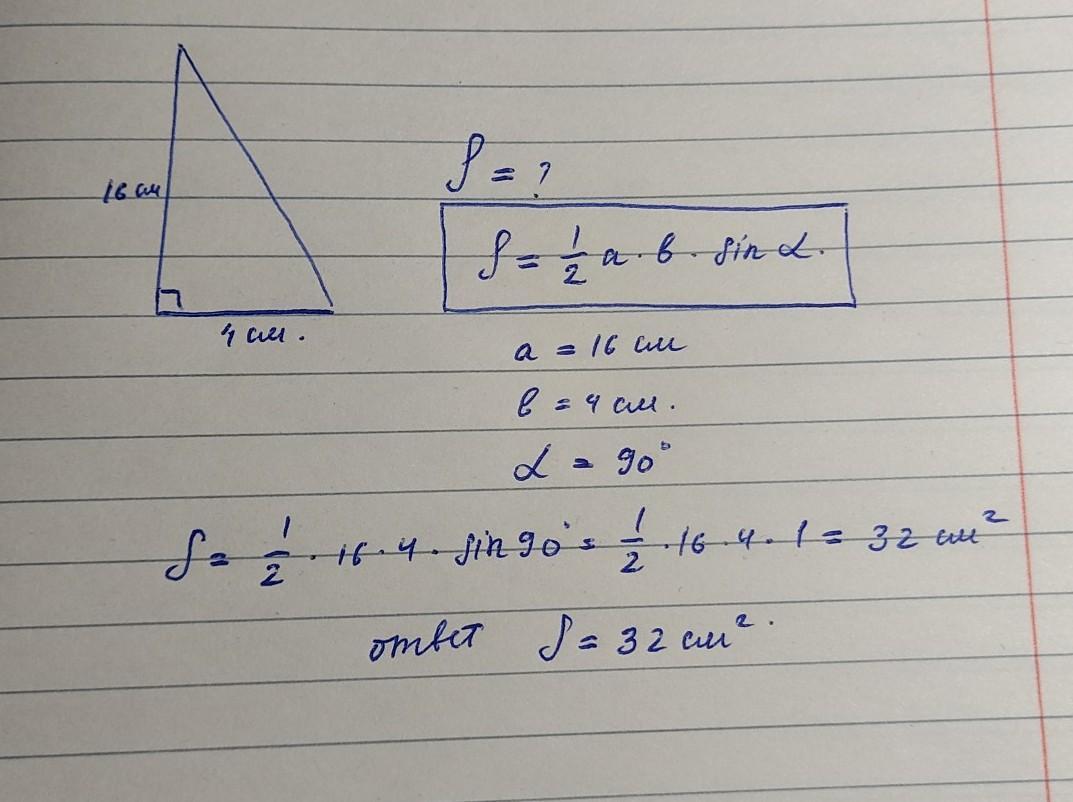 16 см
4 см.
S = ?
S = 1/2 a · b · sin α.
a = 16 см
b = 4 см.
α = 90°
S = 1/2 · 16 · 4 · sin 90° = 1/2 · 16 · 4 · 1 = 32 см²
ответ S = 32 см².